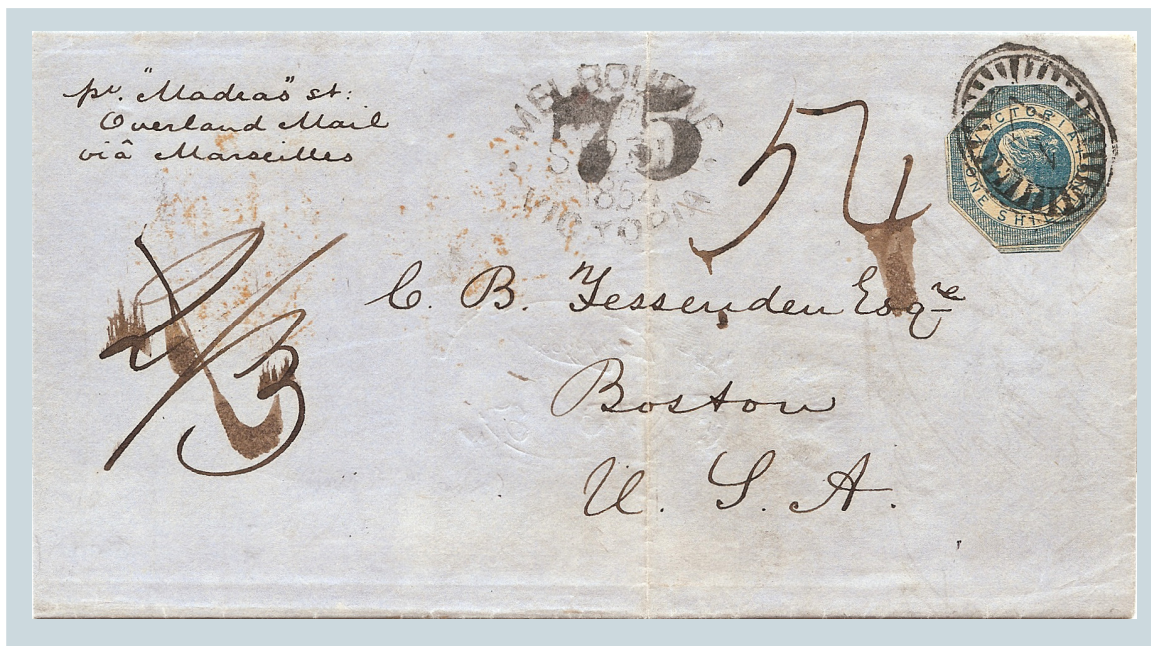 pr. "Madras" st:
Overland Mail
viâ Marseilles
MELBOURNE
75
VICTORIA
54
VICTORIA
ONE SHILLING
2/3
C. B. Fessenden Esqre
Boston
U. S. A.